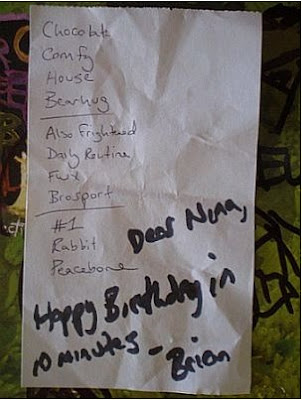 Chocolate
Comfy
House
Bearhug
Also Frightened
Daily Routine
FWX
Brosport
#1
Rabbit
Peacebone
Dear Nina,
Happy Birthday in
10 minutes -
Brian